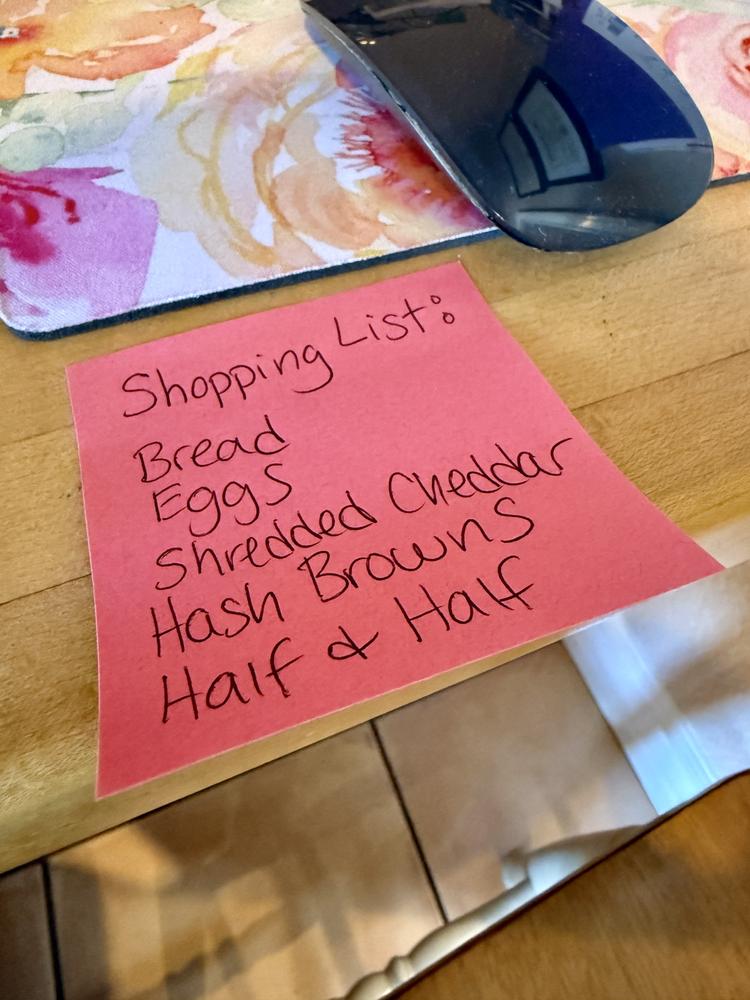 Shopping List:
Bread
Eggs
Shredded Cheddar
Hash Browns
Half & Half